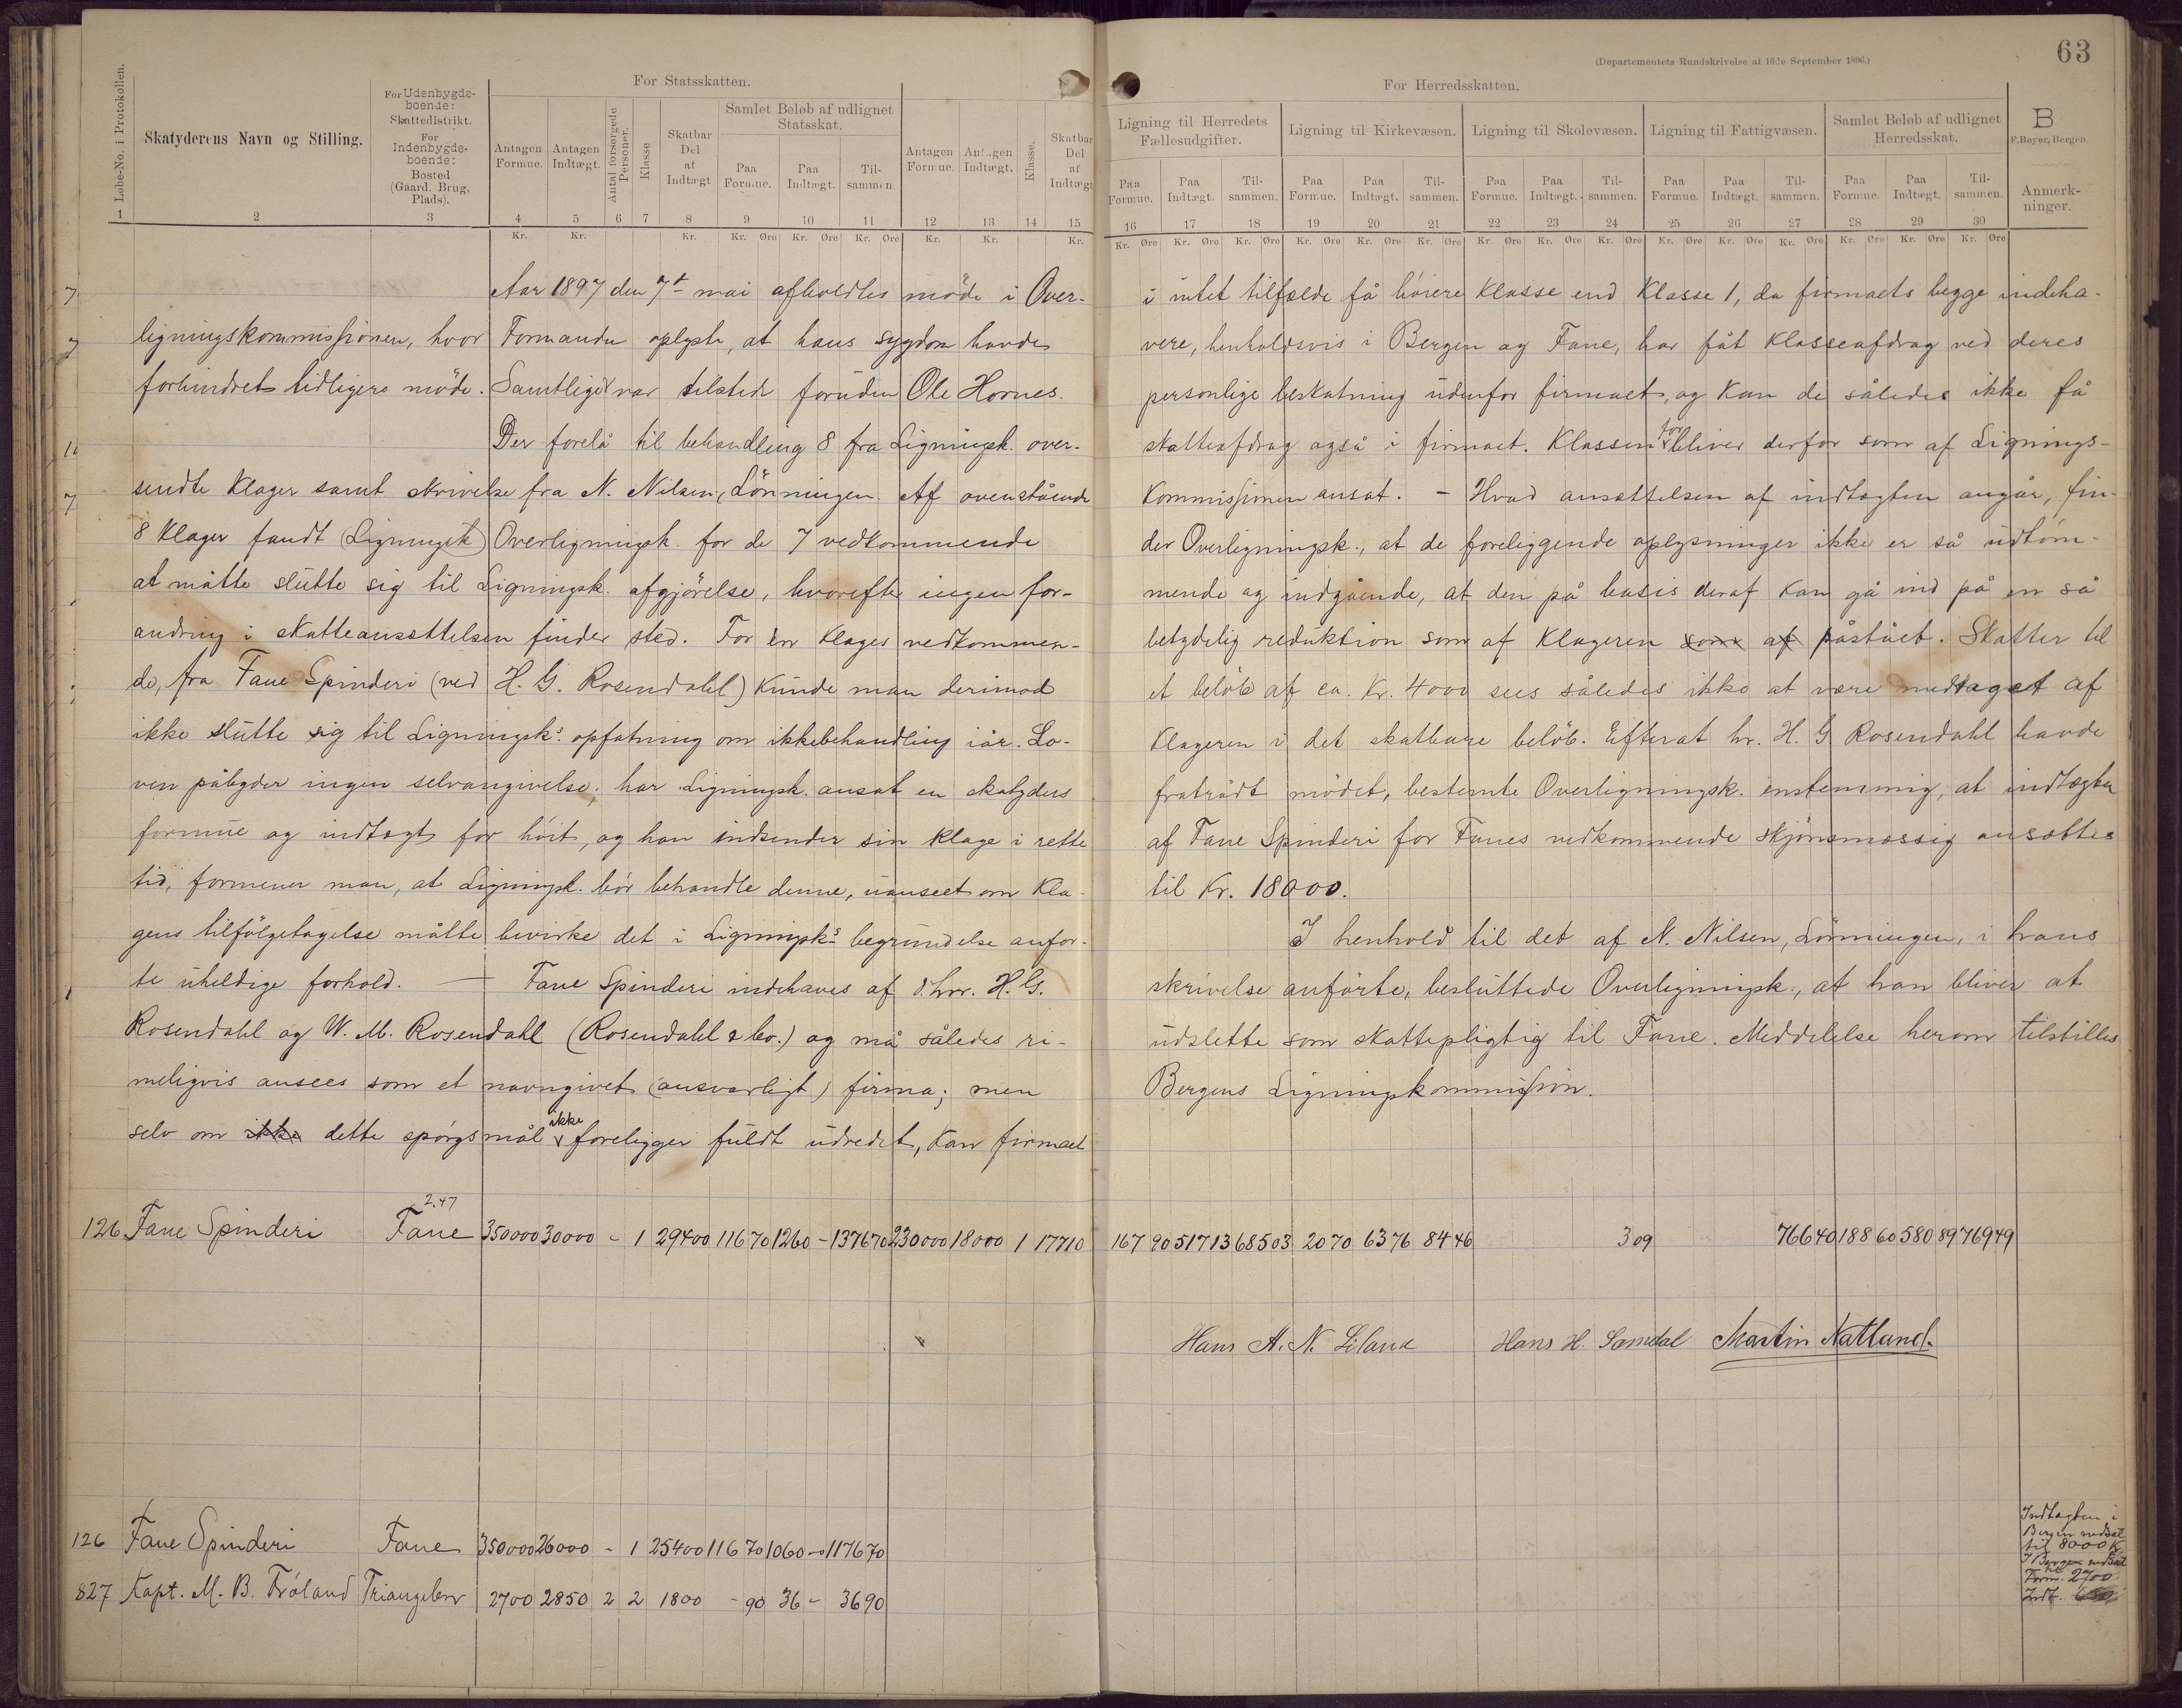 63
(Departementets Rundskrivelse af 16de September 1896.)
For Statsskatten.
For Herredsskatten.
Løbe-No. i Protokollen.
Skatyderens Navn og Stilling.
For Udenbygdsboende: Skattedistrikt. For Indenbygdsboende: Bosted (Gaard, Brug, Plads).
Antagen Formue.
Antagen Indtægt.
Antal forsørgede Personer.
Klasse
Skatbar Del af Indtægt
Samlet Beløb af udlignet Statsskat.
Paa Formue. Paa Indtægt. Tilsammen.
Antagen Formue.
Antagen Indtægt.
Klasse.
Skatbar Del af Indtægt
Ligning til Herredets Fællesudgifter.
Ligning til Kirkevæsen.
Ligning til Skolevæsen.
Ligning til Fattigvæsen.
Samlet Beløb af udlignet Herredsskat.
B
F. Beyer, Bergen.
Paa Formue. Paa Indtægt. Tilsammen. Paa Formue. Paa Indtægt. Tilsammen. Paa Formue. Paa Indtægt. Tilsammen. Paa Formue. Paa Indtægt. Tilsammen. Paa Formue. Paa Indtægt. Tilsammen.
Anmerkninger.
1 2 3 4 5 6 7 8 9 10 11 12 13 14 15
16 17 18 19 20 21 22 23 24 25 26 27 28 29 30
Kr. Kr. Kr. Kr. Øre Kr. Øre Kr. Øre Kr. Kr. Kr.
Kr. Øre Kr. Øre Kr. Øre Kr. Øre Kr. Øre Kr. Øre Kr. Øre Kr. Øre Kr. Øre Kr. Øre Kr. Øre Kr. Øre Kr. Øre Kr. Øre Kr. Øre
Aar 1897 den 7t mai afholdtes möde i Over-
ligningskommissionen, hvor Formanden oplyste, at hans sygdom havde
forhindret tidligere möde. Samtlige var tilstede foruden Ole Hornes.
Der forelå til behandling 8 fra Ligningsk. over-
sendte klager samt skrivelse fra N. Nilsen, Lönningen. Af ovenstående
8 klager fandt (Ligningsk) Overligningsk. for de 7 vedkommende
at måtte slutte sig til Ligningsk. afgjörelse, hvorefter ingen for-
andring i skatteansættelsen finder sted. For én klages vedkommen-
de, fra Fane Spinderi (ved H. G. Rosendahl) kunde man derimod
ikke slutte sig til Ligningsk.s opfatning om ikkebehandling iår. Lo-
ven påbyder ingen selvangivelse; har Ligningsk. ansat en skatyders
formue og indtægt for höit, og han indsender sin klage i rette
tid, formener man, at Ligningsk. bör behandle denne, uanseet om kla-
gens tilfölgetagelse måtte bevirke det i Ligningsk.s begrundelse anför-
te uheldige forhold. — Fane Spinderi indehaves af d'hrr. H. G.
Rosendahl og W. M. Rosendahl (Rosendahl & Co.) og må således ri-
meligvis ansees som et navngivet (ansvarligt) firma; men
selv om ikke dette spörgsmål ikke foreligger fuldt udredet, kan firmaet
i intet tilfælde få höiere klasse end klasse 1, da firmaets begge indeha-
vere, henholdsvis i Bergen og Fane, har fåt klasseafdrag ved deres
personlige beskatning udenfor firmaet, og kan de således ikke få
skatteafdrag også i firmaet. Klassen for bliver derfor som af Lignings-
kommissionen ansat. – Hvad ansættelsen af indtægten angår, fin-
der Overligningsk., at de foreliggende oplysninger ikke er så udtöm-
mende og indgående, at den på basis deraf kan gå ind på en så
betydelig reduktion som af klageren som af påstået. Skatter til
et belöb af ca. Kr. 4000 sees således ikke at være medtaget af
klageren i det skatbare belöb. Efterat hr. H. G Rosendahl havde
fratrådt mödet, bestemte Overligningsk. enstemmig, at indtægten
af Fane Spinderi for Fanes vedkommende skjönsmæssig ansættes
til Kr. 18000.
I henhold til det af N. Nilsen, Lönningen, i hans
skrivelse anförte, besluttede Overligningsk., at han bliver at
udslette som skattepligtig til Fane. Meddelelse herom tilstilles
Bergens Ligningskommission.
2.47
126 Fane Spinderi Fane 350000 30000 - 1 29400 116 70 1260 - 1376 70 230000 18000 1 17710 167 90 517 13 685 03 20 70 63 76 84 46 3 09 766 40 188 60 580 89 769 49
Hans A. N. Lilana Hans H. Samdal Martin Natland.
126 Fane Spinderi Fane 350000 26000 - 1 25400 116 70 1060 - 1176 70
Indtægten i
Bergen nedsat
til 8000 Kr.
827 Kapt. M. B. Fröland Triangelen 2700 2850 2 2 1800 - 90 36 - 36 90
I Bergen nedsat
til
Form. 2700
Indt.